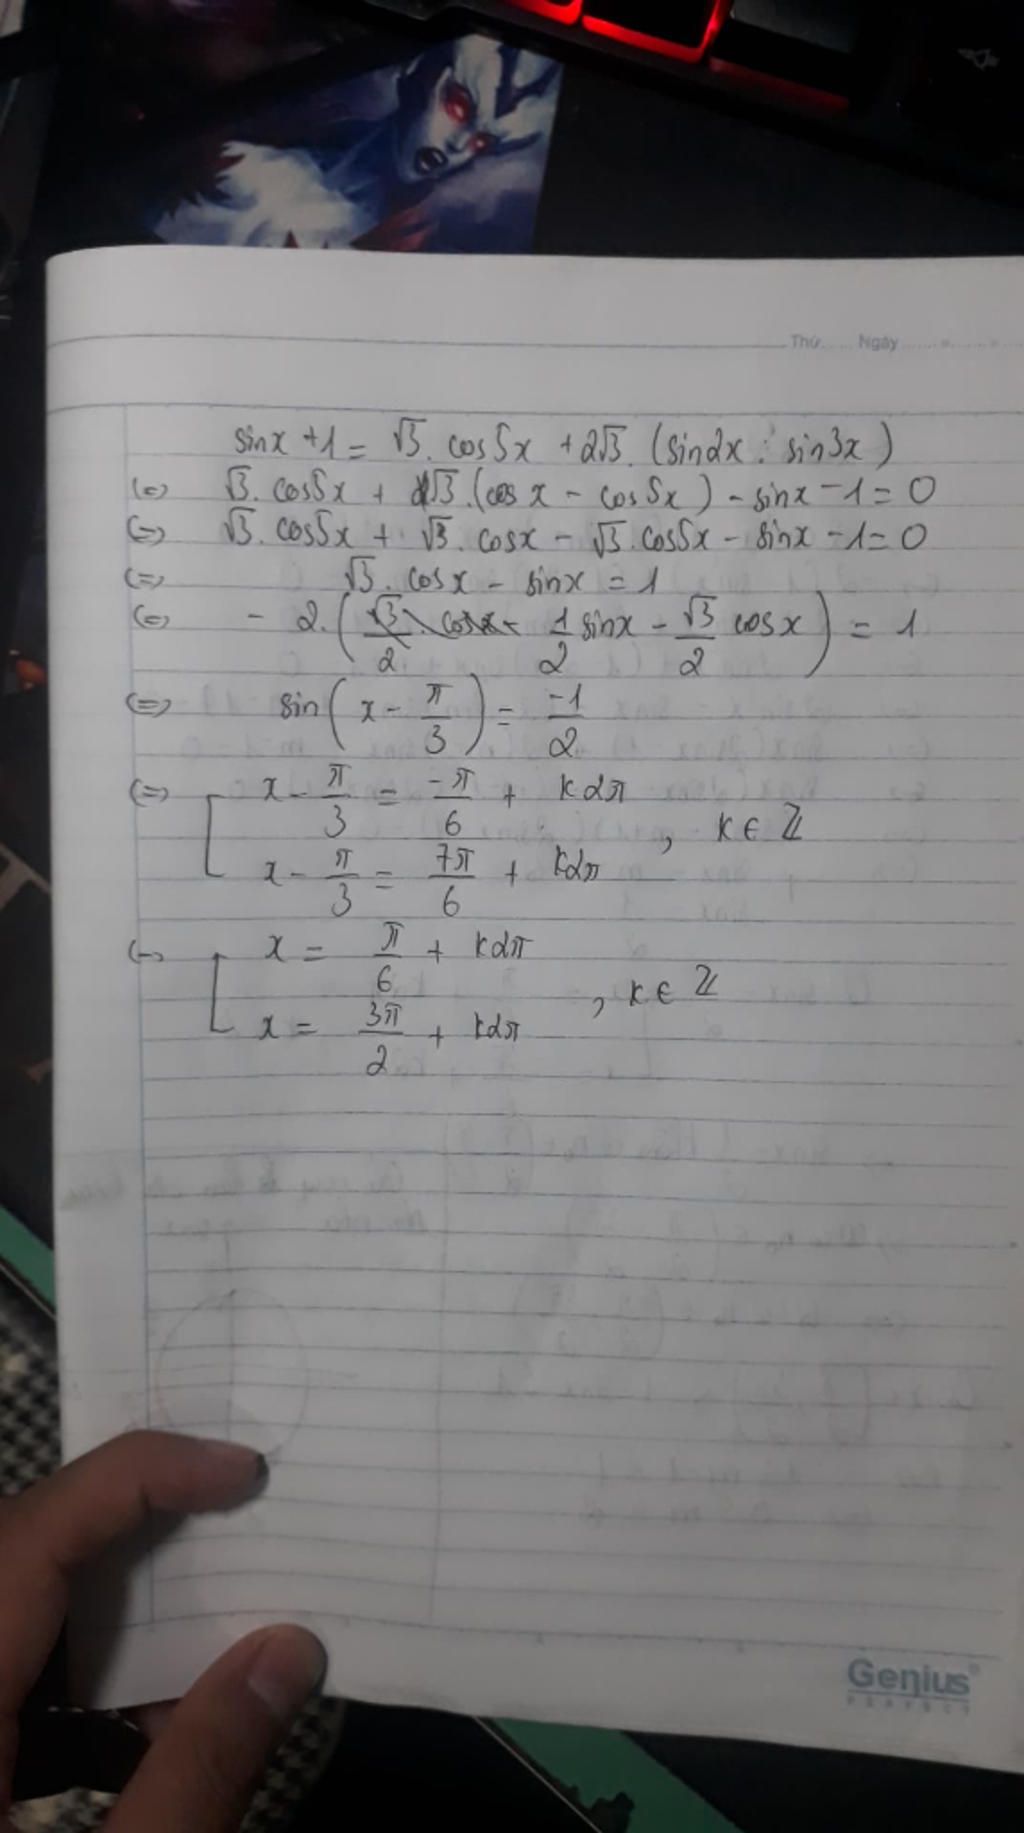 Thứ...... Ngày ......
sinx + 1 = √3 . cos5x + 2√3 . (sin2x . sin3x)
(=) √3 . cos5x + √3 . (cosx - cos5x) - sinx - 1 = 0
(=) √3 . cos5x + √3 . cosx - √3 . cos5x - sinx - 1 = 0
(=) √3 . cosx - sinx = 1
(=) - 2 . (1/2 sinx - √3/2 cosx) = 1
(=) sin(x - π/3) = -1/2
(=) [ x - π/3 = -π/6 + k2π
, k ∈ ℤ
x - π/3 = 7π/6 + k2π
(=) [ x = π/6 + k2π
, k ∈ ℤ
x = 3π/2 + k2π
Genius
PERFECT